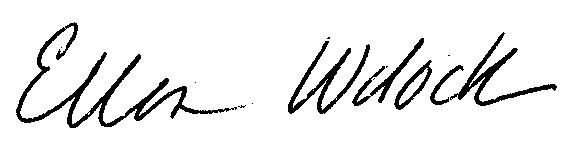 Ellen Wolock